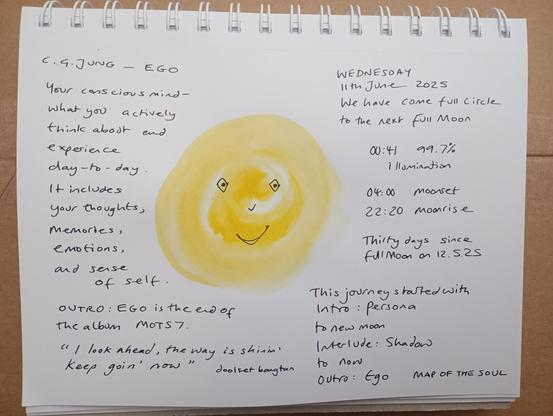 C.G.JUNG — EGO
Your conscious mind —
what you actively
think about and
experience
day-to-day.
It includes
your thoughts,
memories,
emotions,
and sense
of self.
OUTRO: EGO is the end of
the album MOTS7.
"I look ahead, the way is shinin'
keep goin' now"
doolset bangtan
WEDNESDAY
11th June 2025
We have come full circle
to the next full Moon
00:41 99.7%
illumination
04:00 moonset
22:20 moonrise
Thirty days since
full Moon on 12.5.25
This journey started with
Intro: Persona
to new moon
Interlude: Shadow
to now
Outro: Ego
MAP OF THE SOUL